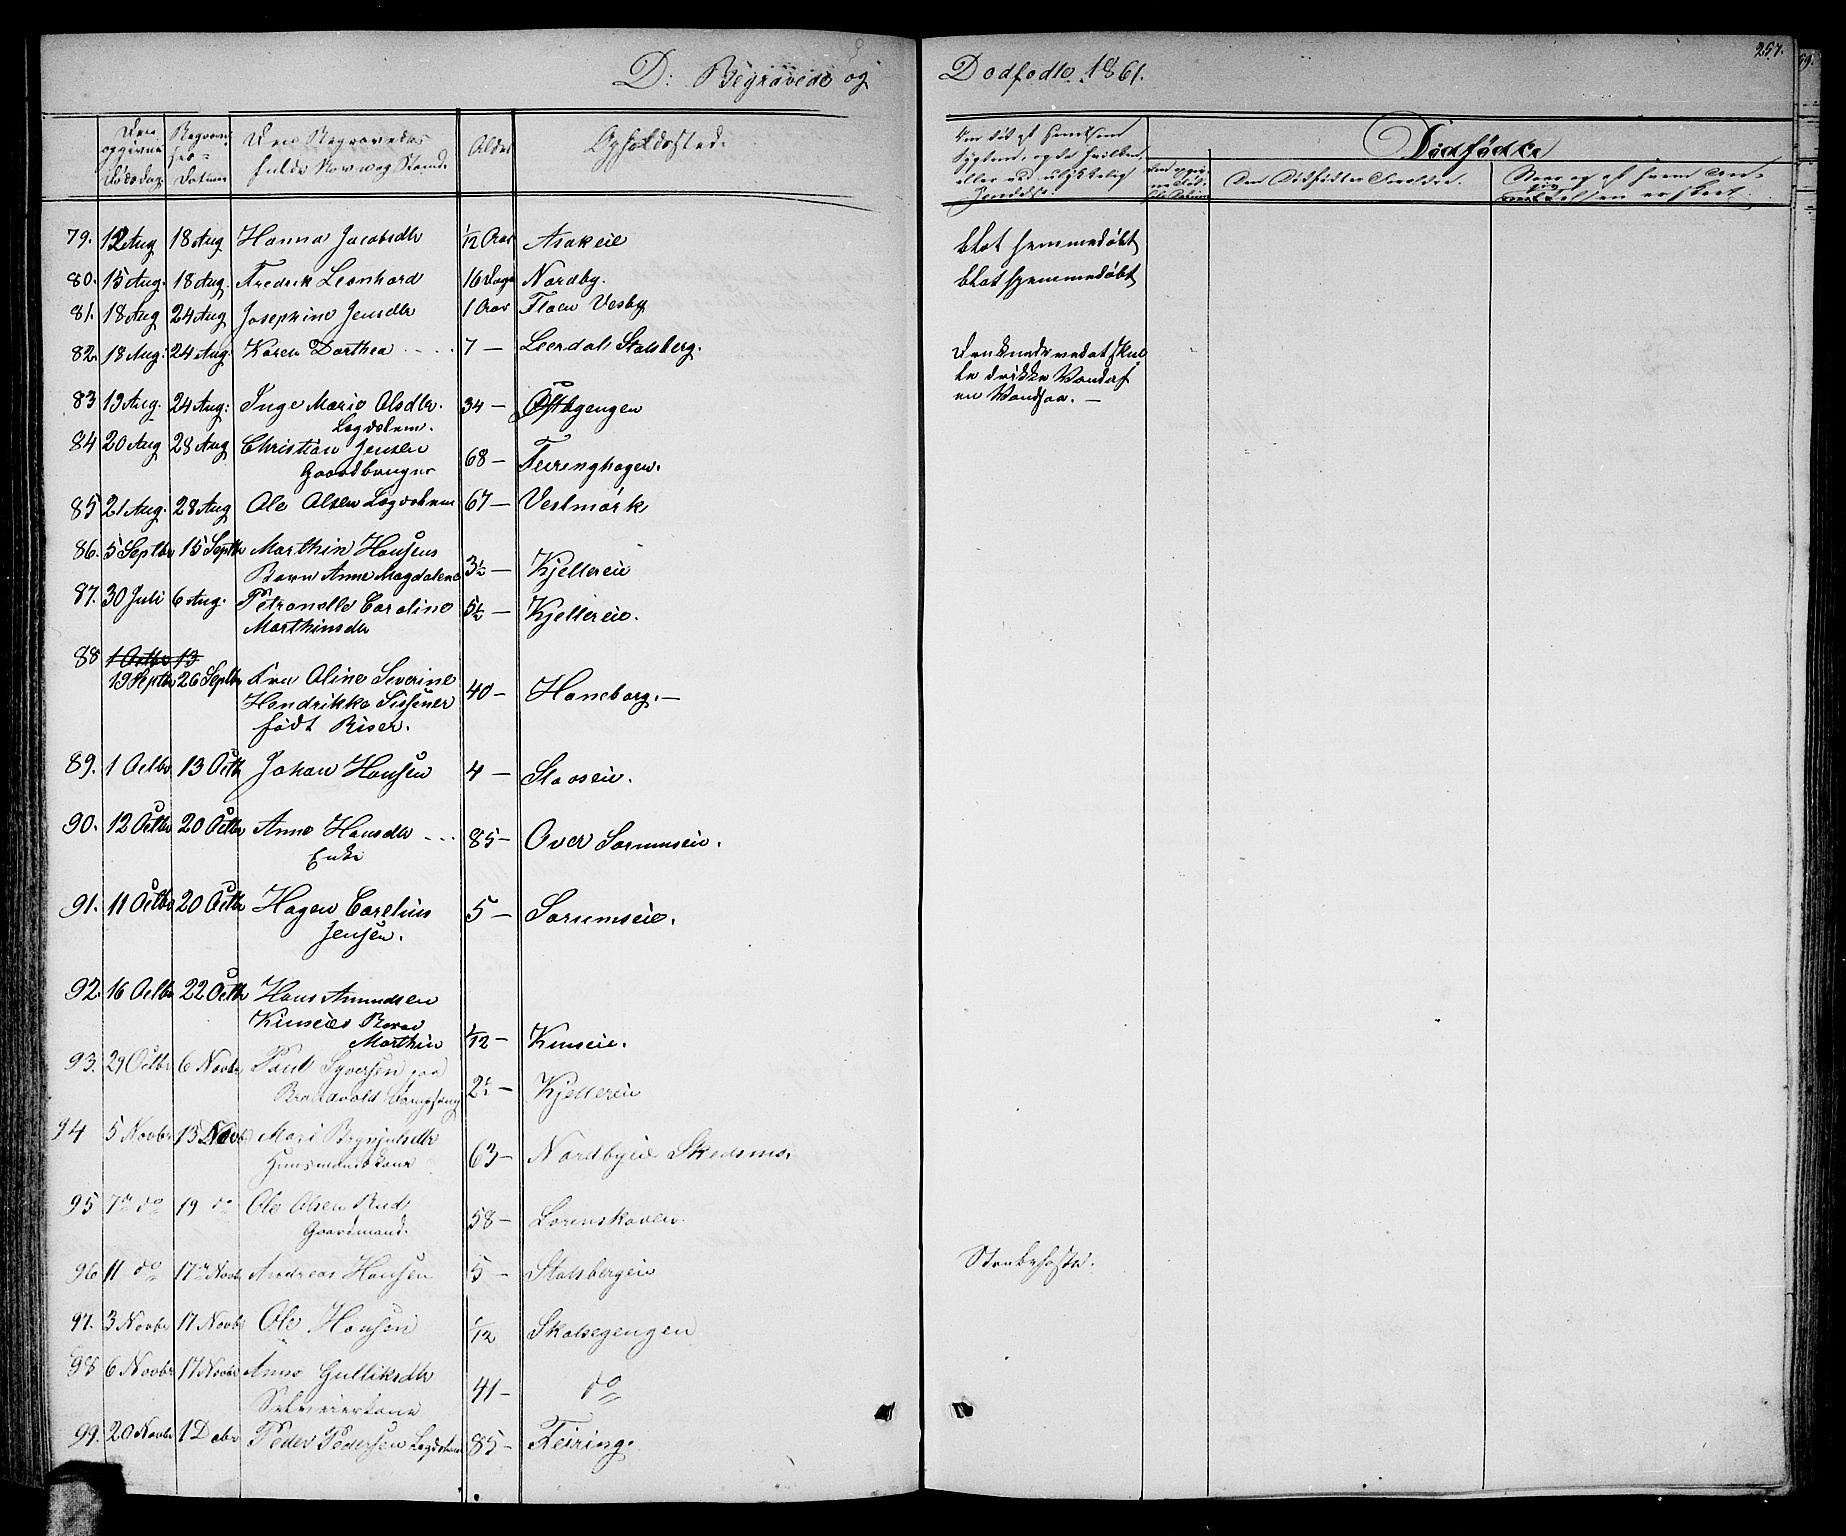 D: Begravede og Dødfødte 1861.
257.
Den opgivne Dødsdag
Begravelses-Datum
Den Begravedes fulde Navn og Stand.
Alder
Opholdssted.
Dødfødte
Den Dødfødtes Forældre.
79. 12 Aug 18 Aug Hanna Jacobsdtr 1/12 Aar Asakeie blot hjemmedøbt
80. 15 Aug. 18 Aug. Fredrik Leonhard 16 Dage Nordby. blot hjemmedøbt
81. 18 Aug 24 Aug Josephine Jensdtr 1 Aar Floen Vesby
82. 18 Aug: 24 Aug. Karen Dorthea 7 — Leerdal Stalsberg.
83 19 Aug. 24 Aug: Inge Marie Olsdtr. 34 —
Lægdslem.
84 20 Aug 28 Aug Christian Jensen 68 — Feiringhagen.
Gaardbruger
85 21 Aug. 28 Aug Ole Olsen Lægdslem 67 — Vestmørk
86. 5 Septbr 15 Septbr Marthin Hansens
Barn Anne Magdalene 3½ — Kjellereie
87. 30 Juli 6 Aug. Petronelle Caroline 5½ — Kjellereie.
Marthinsdtr
88 1 Octbr 13
19 Septbr 26 Septbr Fru Oline Severine 40 — Haneborg. —
Hendrikke Sissener
født Riser.
89. 1 Octbr 13 Octb Johan Hansen 4 — Staaseie.
90. 12 Octbr 20 Octbr Anne Hansdtr 85 — Over Sørumseie.
Enke
91. 11 Octbr 20 Octbr Hagen Carelius 5 — Sørumseie.
Jensen.
92. 16 Octbr 22 Octbr Hans Amundsen
Kuseies Barn
Marthin 1/12 — Kuseie.
93. 29 Octbr 6 Novbr Paul Syversen paa 2½ — Kjellereie
Brandvold
94 5 Novbr 13 Novbr Mari Brynjulsdtr 63 — Nordbyeie Skedsmo.
Huusmandskone
95 7 do 19 do Ole Olsen Rud 58 — Lørenskoven.
Gaardmand.
96 11 do 17 Novbr Andreas Hansen 5 — Stalsbergeie Strubehoste.
97. 3 Novbr 17 Novbr Ole Hansen 1/12 Skalsegengen
98 6 Novbr 17 Novbr Anne Gulliksdtr 41 — do
99. 20 Novbr 1 Debr Peder Pedersen Lægdslem 85 — Feiring.